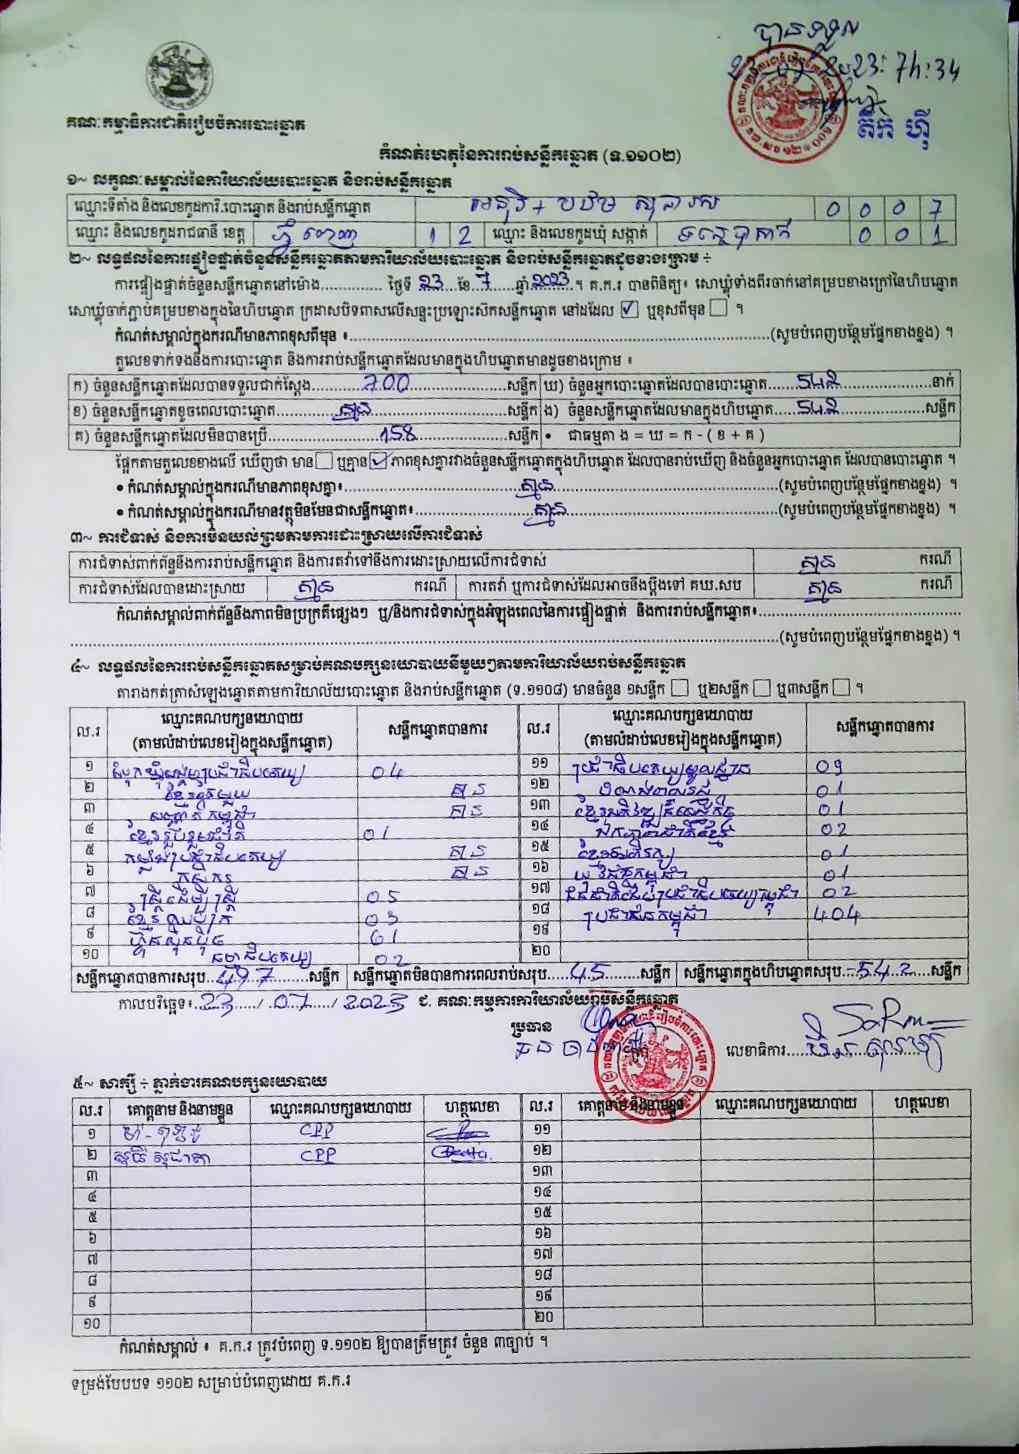 បានទទួល
គណៈកម្មាធិការជាតិរៀបចំការបោះឆ្នោត
តឹក ហ៊ី
កំណត់ហេតុនៃការរាប់សន្លឹកឆ្នោត (ទ.១១០២)
១~ លក្ខណៈសម្គាល់នៃការិយាល័យបោះឆ្នោត និងរាប់សន្លឹកឆ្នោត
ឈ្មោះទីតាំង និងលេខកូដការិ.បោះឆ្នោត និងរាប់សន្លឹកឆ្នោត 0 0 0 7
ឈ្មោះ និងលេខកូដរាជធានី ខេត្ត ភ្នំពេញ 1 2 ឈ្មោះ និងលេខកូដឃុំ សង្កាត់ 0 0 1
២~ លទ្ធផលនៃការផ្ទៀងផ្ទាត់ចំនួនសន្លឹកឆ្នោតតាមការិយាល័យបោះឆ្នោត និងរាប់សន្លឹកឆ្នោតដូចខាងក្រោម ÷
ការផ្ទៀងផ្ទាត់ចំនួនសន្លឹកឆ្នោតនៅម៉ោង.............. ថ្ងៃទី 23 ខែ 7 ឆ្នាំ 2023 ។ គ.ក.រ បានពិនិត្យ៖ សោឃ្លុំទាំងពីរចាក់នៅគម្របខាងក្រៅនៃហិបឆ្នោត
សោឃ្លុំចាក់ភ្ជាប់គម្របខាងក្នុងនៃហិបឆ្នោត ក្រដាសបិទពាសលើសន្ទះប្រឡោះស៊កសន្លឹកឆ្នោត នៅដដែល ☑ ឬខុសពីមុន ☐ ។
កំណត់សម្គាល់ក្នុងករណីមានភាពខុសពីមុន ៖..............(សូមបំពេញបន្ថែមផ្នែកខាងខ្នង) ។
តួលេខទាក់ទងនឹងការបោះឆ្នោត និងការរាប់សន្លឹកឆ្នោតដែលមានក្នុងហិបឆ្នោតមានដូចខាងក្រោម ៖
ក) ចំនួនសន្លឹកឆ្នោតដែលបានទទួលជាក់ស្តែង 700 សន្លឹក ឃ) ចំនួនអ្នកបោះឆ្នោតដែលបានបោះឆ្នោត 542 នាក់
ខ) ចំនួនសន្លឹកឆ្នោតខូចពេលបោះឆ្នោត គ្មាន សន្លឹក ង) ចំនួនសន្លឹកឆ្នោតដែលមានក្នុងហិបឆ្នោត 542 សន្លឹក
គ) ចំនួនសន្លឹកឆ្នោតដែលមិនបានប្រើ 158 សន្លឹក • ជាធម្មតា ង = ឃ = ក - ( ខ + គ )
ផ្អែកតាមតួលេខខាងលើ ឃើញថា មាន ☐ ឬគ្មាន ☑ ភាពខុសគ្នារវាងចំនួនសន្លឹកឆ្នោតក្នុងហិបឆ្នោត ដែលបានរាប់ឃើញ និងចំនួនអ្នកបោះឆ្នោត ដែលបានបោះឆ្នោត ។
• កំណត់សម្គាល់ក្នុងករណីមានភាពខុសគ្នា៖ គ្មាន (សូមបំពេញបន្ថែមផ្នែកខាងខ្នង) ។
• កំណត់សម្គាល់ក្នុងករណីមានវត្ថុមិនមែនជាសន្លឹកឆ្នោត៖ គ្មាន (សូមបំពេញបន្ថែមផ្នែកខាងខ្នង) ។
៣~ ការជំទាស់ និងការមិនយល់ព្រមតាមការដោះស្រាយលើការជំទាស់
ការជំទាស់ពាក់ព័ន្ធនឹងការរាប់សន្លឹកឆ្នោត និងការតវ៉ាទៅនឹងការដោះស្រាយលើការជំទាស់ គ្មាន ករណី
ការជំទាស់ដែលបានដោះស្រាយ គ្មាន ករណី ការតវ៉ា ឬការជំទាស់ដែលអាចនឹងប្តឹងទៅ គឃ.សប គ្មាន ករណី
កំណត់សម្គាល់ពាក់ព័ន្ធនឹងភាពមិនប្រក្រតីផ្សេងៗ ឬ/និងការជំទាស់ក្នុងអំឡុងពេលនៃការផ្ទៀងផ្ទាត់ និងការរាប់សន្លឹកឆ្នោត៖..............
..............(សូមបំពេញបន្ថែមផ្នែកខាងខ្នង) ។
៤~ លទ្ធផលនៃការរាប់សន្លឹកឆ្នោតសម្រាប់គណបក្សនយោបាយនីមួយៗតាមការិយាល័យរាប់សន្លឹកឆ្នោត
តារាងកត់ត្រាសំឡេងឆ្នោតតាមការិយាល័យបោះឆ្នោត និងរាប់សន្លឹកឆ្នោត (ទ.១១០៨) មានចំនួន ១សន្លឹក ☐ ឬ២សន្លឹក ☐ ឬ៣សន្លឹក ☐ ។
ល.រ ឈ្មោះគណបក្សនយោបាយ (តាមលំដាប់លេខរៀងក្នុងសន្លឹកឆ្នោត) សន្លឹកឆ្នោតបានការ ល.រ ឈ្មោះគណបក្សនយោបាយ (តាមលំដាប់លេខរៀងក្នុងសន្លឹកឆ្នោត) សន្លឹកឆ្នោតបានការ
១ សំបុកឃ្មុំសង្គមប្រជាធិបតេយ្យ 04 ១១ ប្រជាធិបតេយ្យមូលដ្ឋាន 09
២ ខ្មែរតែមួយ គ្មាន ១២ 01
៣ កម្ពុជា គ្មាន ១៣ ខ្មែរអភិវឌ្ឍន៍សេដ្ឋកិច្ច 01
៤ ខ្មែររួបរួមជាតិ 01 ១៤ ឯកភាពជាតិខ្មែរ 02
៥ កម្លាំងប្រជាធិបតេយ្យ គ្មាន ១៥ ខ្មែរអភិរក្ស 01
៦ កសិករ គ្មាន ១៦ យុវជនកម្ពុជា 01
៧ ស្ត្រីដើម្បីស្ត្រី 05 ១៧ 02
៨ ខ្មែរឈប់ក្រ 03 ១៨ ប្រជាជនកម្ពុជា 404
៩ ហ៊្វុនស៊ិនប៉ិច 61 ១៩
១០ ធម្មាធិបតេយ្យ 02 ២០
សន្លឹកឆ្នោតបានការសរុប 497 សន្លឹក សន្លឹកឆ្នោតមិនបានការពេលរាប់សរុប 45 សន្លឹក សន្លឹកឆ្នោតក្នុងហិបឆ្នោតសរុប 542 សន្លឹក
កាលបរិច្ឆេទ៖ 23 / 07 / 2023 ជ. គណៈកម្មការការិយាល័យរាប់សន្លឹកឆ្នោត
ប្រធាន
លេខាធិការ
៥~ សាក្សី ÷ ភ្នាក់ងារគណបក្សនយោបាយ
ល.រ គោត្តនាម និងនាមខ្លួន ឈ្មោះគណបក្សនយោបាយ ហត្ថលេខា ល.រ គោត្តនាម និងនាមខ្លួន ឈ្មោះគណបក្សនយោបាយ ហត្ថលេខា
១ CPP ១១
២ CPP ១២
៣ ១៣
៤ ១៤
៥ ១៥
៦ ១៦
៧ ១៧
៨ ១៨
៩ ១៩
១០ ២០
កំណត់សម្គាល់ ៖ គ.ក.រ ត្រូវបំពេញ ទ.១១០២ ឱ្យបានត្រឹមត្រូវ ចំនួន ៣ច្បាប់ ។
ទម្រង់បែបបទ ១១០២ សម្រាប់បំពេញដោយ គ.ក.រ